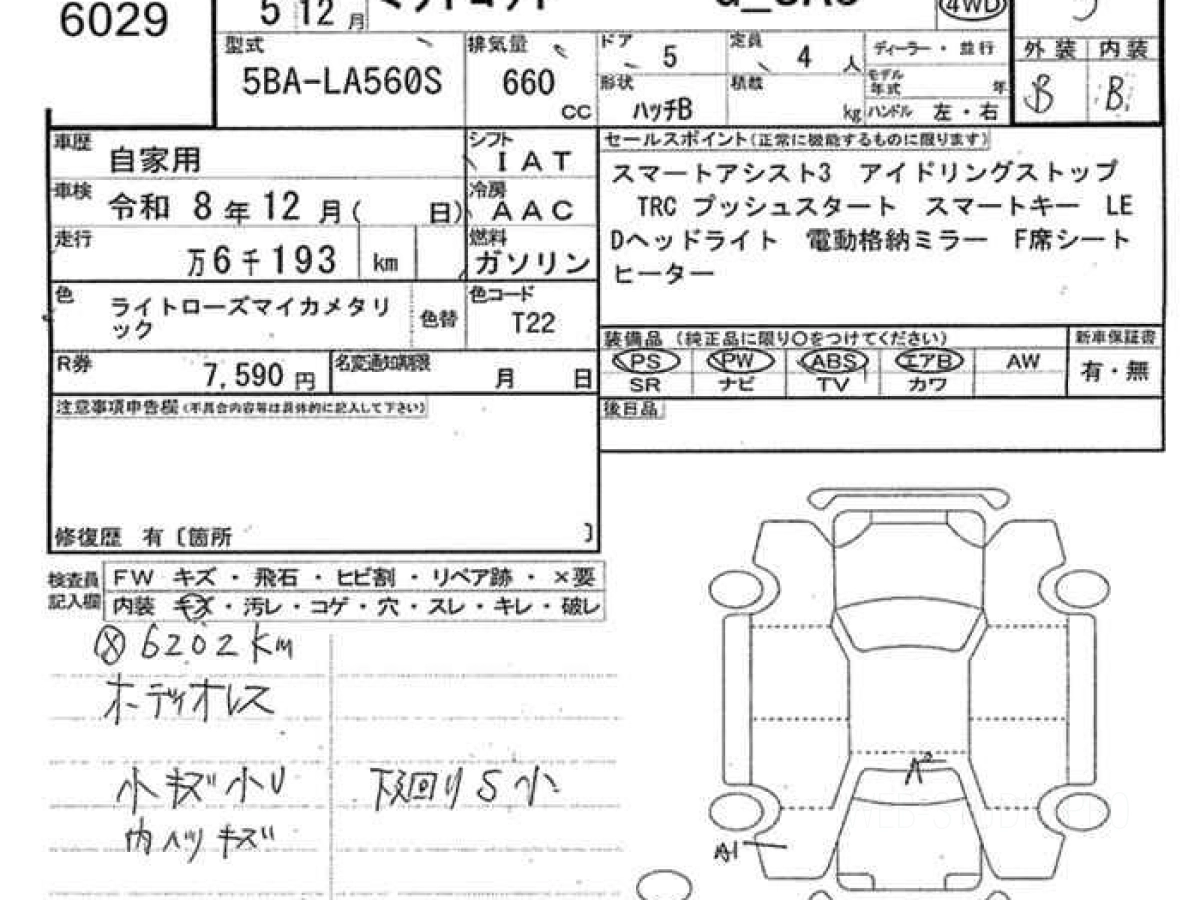 6029
5 12 月
4WD
型式
5BA-LA560S
排気量
660
CC
ドア
5
定員
4 人
形状
ハッチB
積載
kg
ディーラー・並行
モデル年式
年
ハンドル 左・右
外装 内装
B B
車歴
自家用
シフト
IAT
車検
令和 8年12月( 日)
冷房
AAC
走行
万6千193 km
燃料
ガソリン
色
ライトローズマイカメタリ
ック
色替
色コード
T22
R券
7,590 円
名変通知期限
月 日
セールスポイント(正常に機能するものに限ります)
スマートアシスト3 アイドリングストップ
TRC プッシュスタート スマートキー LE
Dヘッドライト 電動格納ミラー F席シート
ヒーター
装備品 (純正品に限り○をつけてください)
PS PW ABS エアB AW
SR ナビ TV カワ
新車保証書
有・無
後日品
注意事項申告欄(不具合内容等は具体的に記入して下さい)
修復歴 有〔箇所 〕
検査員
記入欄
FW キズ・飛石・ヒビ割・リペア跡・×要
内装 キズ・汚レ・コゲ・穴・スレ・キレ・破レ
6202km
小キズ小U
下廻りS小
キズ
A2
A1